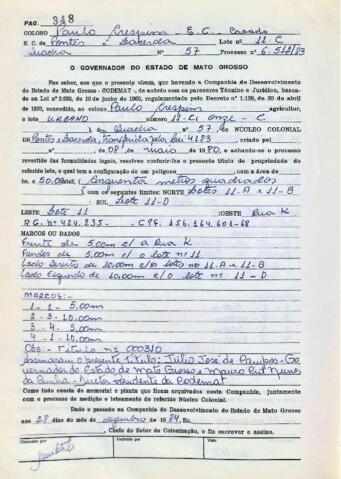 PAG. 318
COLONO Paulo Crespim - E.C. Casado
N. C. de Pontes e Lacerda Lote nº 11-C
Quadra Nº 57 Processo nº 6.512/83
O GOVERNADOR DO ESTADO DE MATO GROSSO
Faz saber, aos que o presente virem, que havendo a Companhia de Desenvolvimento
do Estado de Mato Grosso - CODEMAT -, de acordo com os pareceres Técnico e Jurídico, basea-
da na Lei nº 2.922, de 10 de junho de 1969, regulamentada pelo Decreto nº 1.138, de 20 de abril
de 1970, concedido, ao colono Paulo Crespim agricultor,
o lote URBANO 11-C; onze - C
), em Quadra Nº 57 NÚCLEO COLONIAL
DE Pontes e Lacerda, Transferida pela Lei 4183, criado pel
de 08 de maio de 1980, e achando-se o processo
revestido das formalidades legais, resolveu conferir-lhe o presente título de propriedade do
referido lote, o qual tem a configuração de um polígono, com a área de
ha: 50,00m2 (cinquenta metros quadrados
) e com os seguintes limites: NORTE Lotes 11-A e 11-B
: SUL Lote 11-D
LESTE Lote 11 :OESTE Rua K
R.G. nº 424.235. - CPF. 156.164.601-68
MARCOS OU DADOS
Frente de 5,00m c/ a Rua K
Fundos de 5,00m c/ o lote nº 11
Lado Direito de 10,00m c/os lotes nº 11-A e 11-B
Lado Esquerdo de 10,00m c/ o lote nº 11-D
MARCOS:-
1 - 2 - 5,00m
2 - 3 - 10,00m
3 - 4 - 5,00m
4 - 1 - 10,00m
Obs:- Título nº 000310
Assinaram o presente Título: Júlio José de Campos - Go-
vernador do Estado de Mato Grosso e Mauro Cid Nunes
da Cunha - Diretor Presidente da Codemat
Como tudo consta do memorial e planta que ficam arquivados nesta Companhia, juntamente
com o processo de medição e loteamento do referido Núcleo Colonial.
Dado e passado na Companhia de Desenvolvimento do Estado de Mato Grosso
aos 28 dias do mês de dezembro de 1984. Eu,
, Chefe do Setor de Colonização, o fiz escrever e assino.
Conferido por
Visto